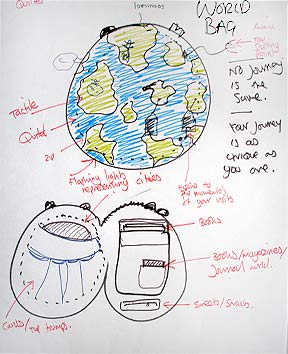 Quilted
luminous
WORLD
BAG
NO JOURNEY
IS THE
SAME.
YOUR JOURNEY
IS AS
UNIQUE AS
YOU ARE.
Tactile
Quilted
Flashing lights
representing cities
to
the moments
of your visits
Books
Books/magazines/
Journal work.
Sweets/Snacks.
Cards/Top trumps.